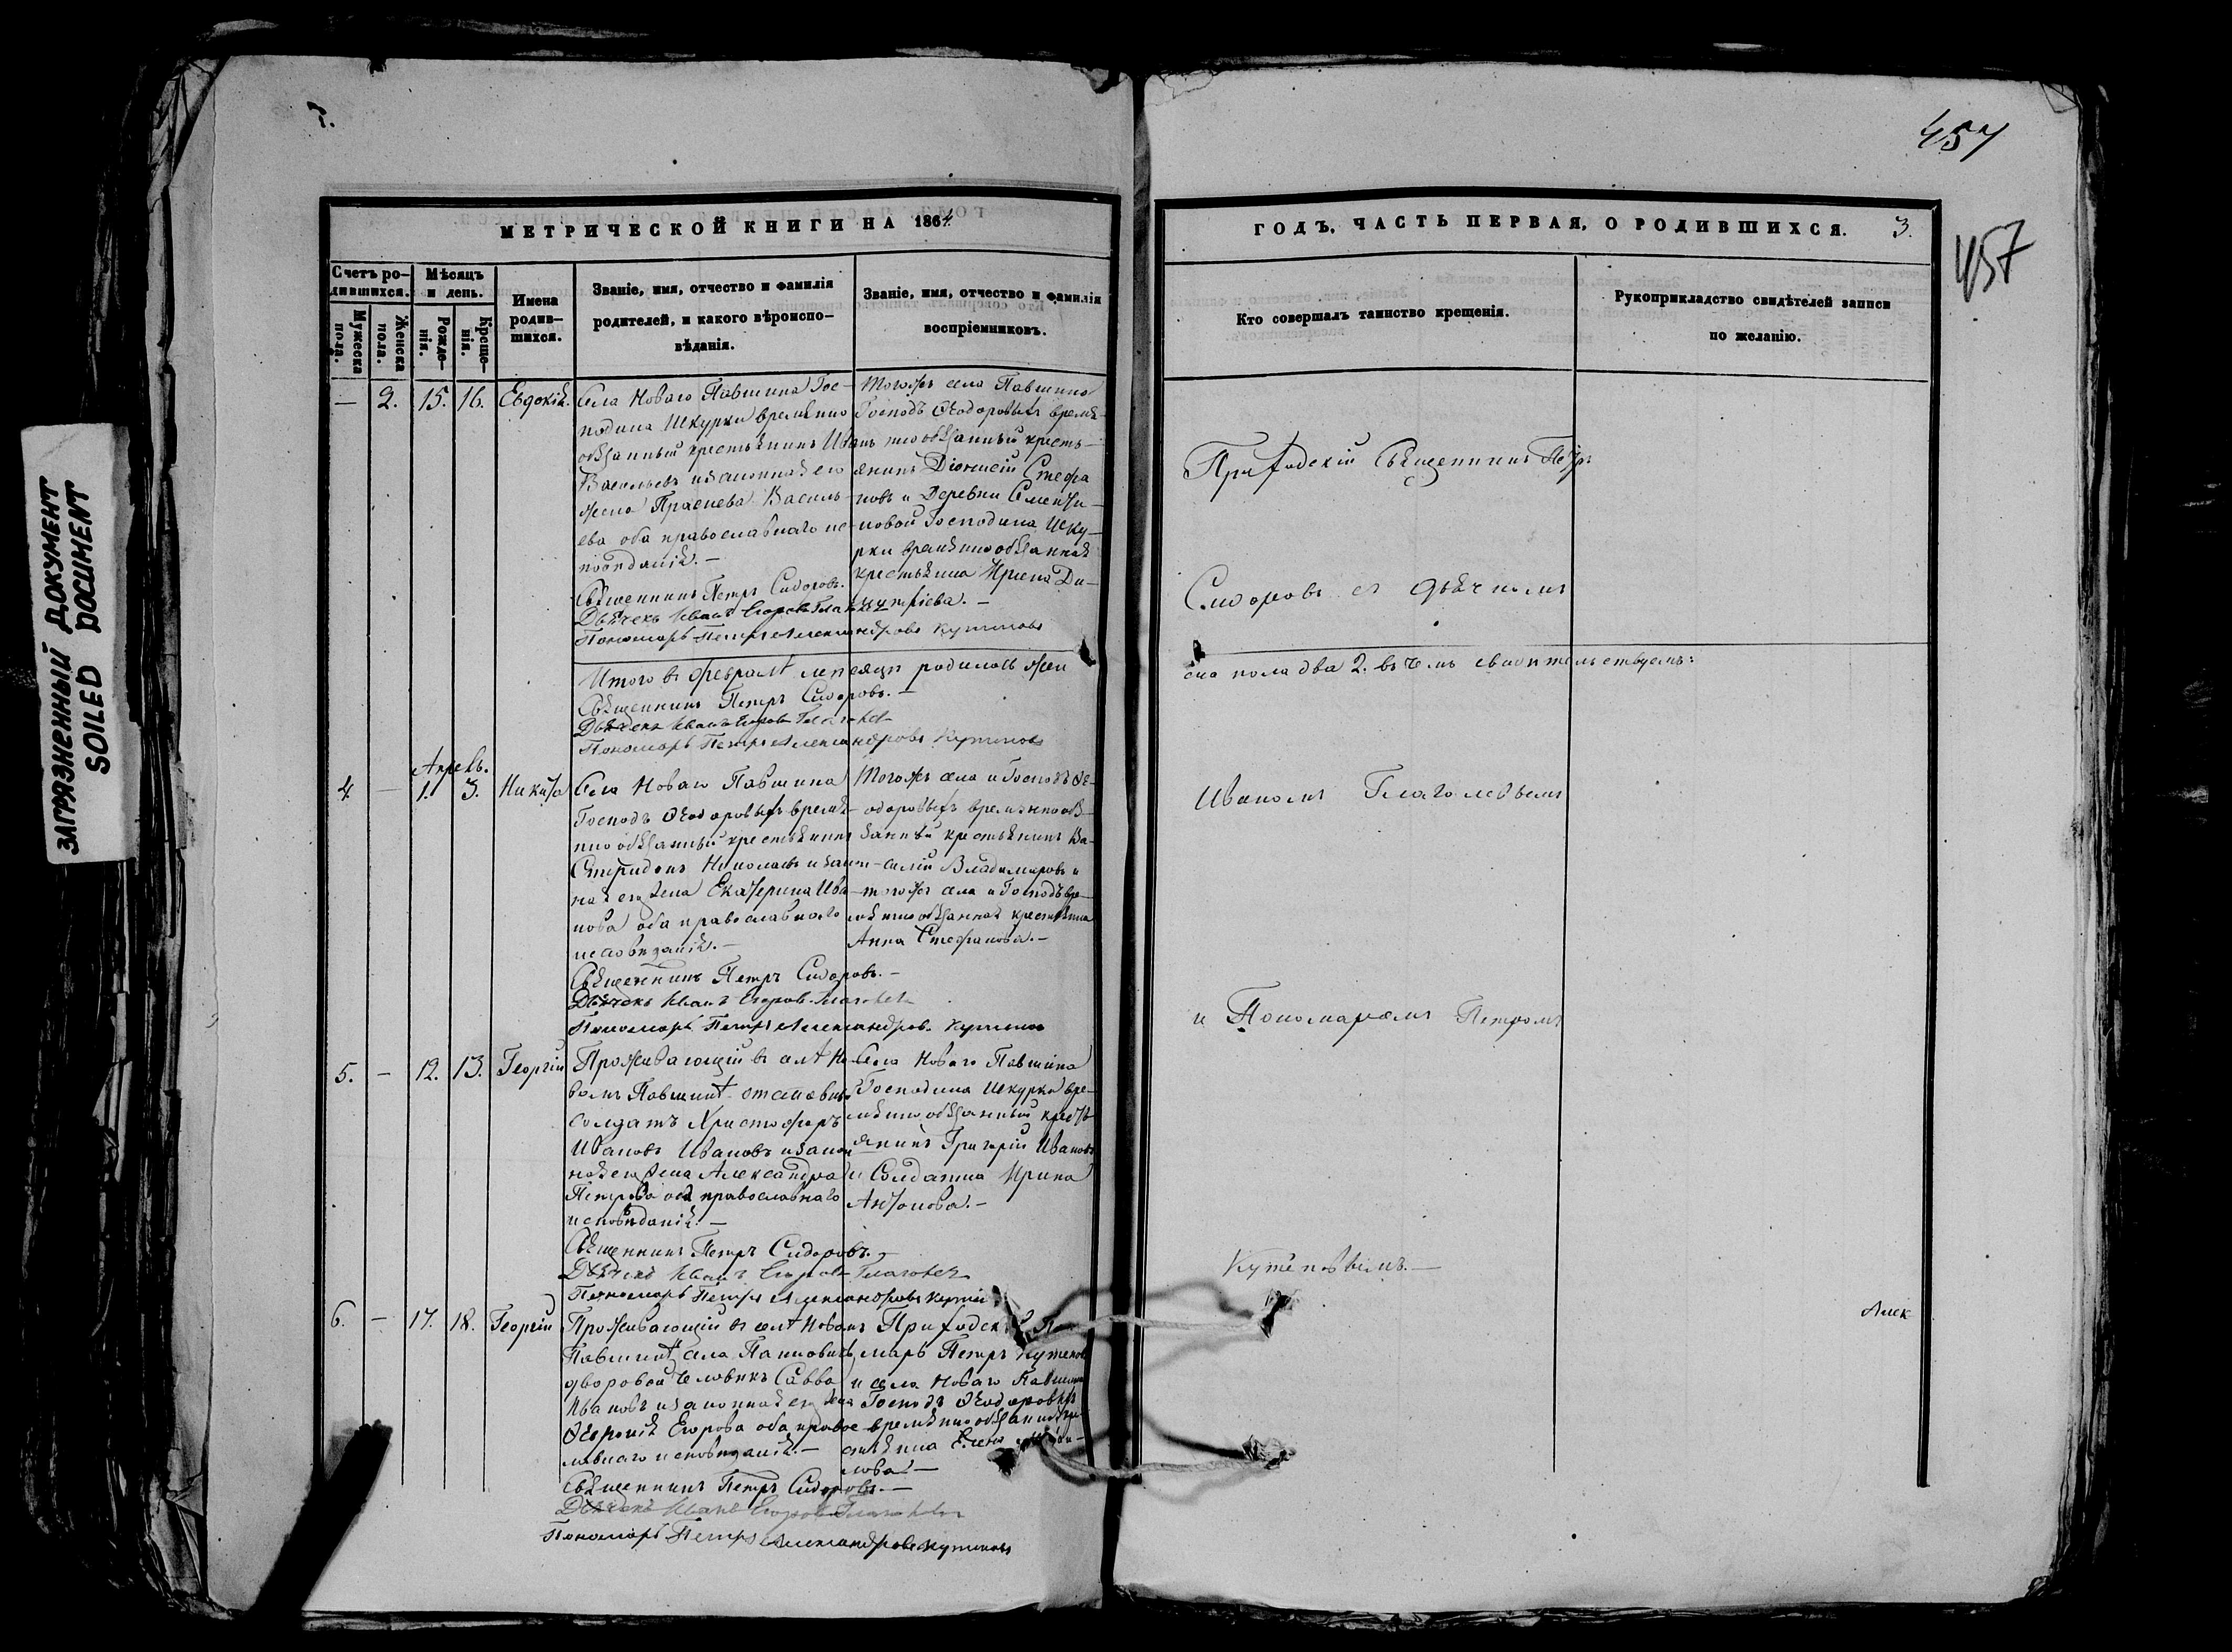 457
457
МЕТРИЧЕСКОЙ КНИГИ НА 1864
ГОДЪ, ЧАСТЬ ПЕРВАЯ, О РОДИВШИХСЯ. 3.
Счетъ ро-
дившихся.
Мужеска
пола.
Женска
пола.
Мѣсяцъ
и день.
Рожде-
нія.
Креще-
нія.
Имена
родив-
шихся.
Званіе, имя, отчество и фамилія
родителей, и какого вѣроиспо-
вѣданія.
Званіе, имя, отчество и фамилія
воспріемниковъ.
Кто совершалъ таинство крещенія.
Рукоприкладство свидѣтелей записи
по желанію.
— 2. 15. 16. Евдокія.
Села Новаго Павшина Гос-
подина Шкурки временно
обязанный крестьянинъ Иванъ
Васильевъ и законная его
жена Василь-
ева оба православнаго ис-
повѣданія. —
Священникъ Петръ Сидоровъ.
Дьячекъ Иванъ Егоровъ
Пономарь Петръ Александровъ Кутеповъ
Тогожъ села Павшина
Господъ Ѳеодоровыхъ времян-
но обязанный кресть-
янинъ Діонисій Стефа
новъ и деревни
Господина Шку-
рки времянно обязанная
крестьянка Ирина Ди-
митріева. —
Итого въ Февралѣ мѣсяцѣ родилось жен
ска пола два 2. въ чемъ свидѣтельствуемъ:
Священникъ Петръ Сидоровъ. —
Дьячекъ Иванъ Егоровъ
Пономарь Петръ Александровъ Кутеповъ
Апрель.
4. — 1. 3. Никита
Села Новаго Павшина
Господъ Ѳеодоровыхъ времян-
но обязанный крестьянинъ
Спиридонъ Николаевъ и закон-
ная его жена Екатерина Ива-
нова оба православнаго
исповѣданія. —
Священникъ Петръ Сидоровъ. —
Дьячекъ Иванъ Егоровъ
Пономарь Петръ Александровъ Кутеповъ
Тогожъ села и Господъ Ѳе-
одоровыхъ времянно обя-
занный крестьянинъ Ва-
силій Владимировъ и
тогожъ села и Господъ вре-
мянно обязанная крестьянка
Анна Стефанова. —
5. — 12. 13. Георгій
Проживающій въ селѣ Но-
вомъ Павшинѣ отставной
солдатъ Христофоръ
Ивановъ Ивановъ и закон
ная его жена Александра
Петрова оба православнаго
исповѣданія. —
Священникъ Петръ Сидоровъ. —
Дьячекъ Иванъ Егоровъ
Пономарь Петръ Александровъ
Села Новаго Павшина
Господина Шкурки вре-
мянно обязанный кресть-
янинъ Григорій Ивановъ
и Солдатка Ирина
Антонова. —
6. — 17. 18. Георгій
Проживающій въ селѣ Новомъ
Павшинѣ села
дворовой человѣкъ Савва
Ивановъ и законная его жена
Ѳевронія Егорова оба правос-
лавнаго исповѣданія. —
Священникъ Петръ Сидоровъ. —
Дьячекъ Иванъ Егоровъ
Пономарь Петръ Александровъ Кутеповъ
марь Петръ Кутеповъ
и села Новаго Павшина
Господъ Ѳеодоровыхъ
времянно обязанная
Елена
лова. —
Приходскій Священникъ Петръ
Сидоровъ съ дьячкомъ
Иваномъ Глаголевымъ
и Пономаремъ Петромъ
Кутеповымъ. —
Алек
ЗАГРЯЗНЕННЫЙ ДОКУМЕНТ
SOILED DOCUMENT